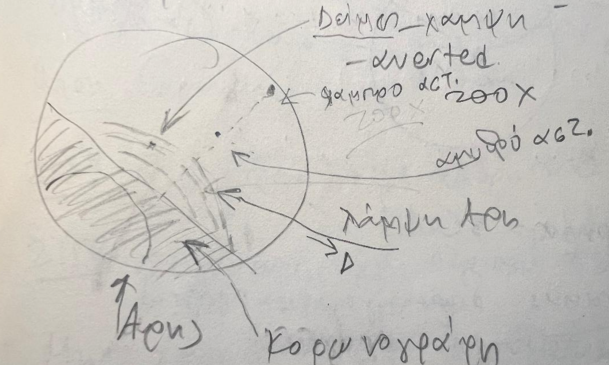 Δείμος - χαμηλη
- averted.
λαμπρο αστ.
200X
αμυδρό αστ.
Λάμψη Αρη
Δ
Άρης
Κορωνογράφη